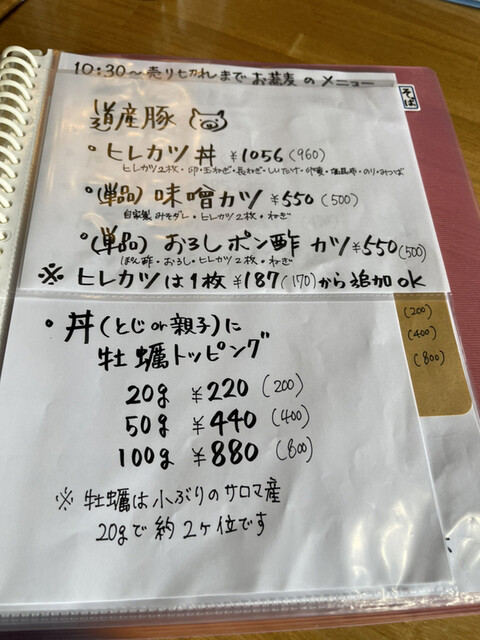 10:30～売り切れまで お蕎麦のメニュー
そば
道産豚
・ヒレカツ丼 ¥1056(960)
ヒレカツ2枚・卵・玉ねぎ・長ねぎ・しいたけ・のり・みつば
・(単品) 味噌カツ ¥550(500)
自家製みそダレ・ヒレカツ2枚・ねぎ
・(単品) おろしポン酢カツ ¥550(500)
ぽん酢・おろし・ヒレカツ2枚・ねぎ
※ ヒレカツは1枚 ¥187(170)から追加OK
・丼(とじor親子)に
牡蠣トッピング
20g ¥220 (200)
50g ¥440 (400)
100g ¥880 (800)
(200)
(400)
(800)
※ 牡蠣は小ぶりのサロマ産
20gで約2ヶ位です